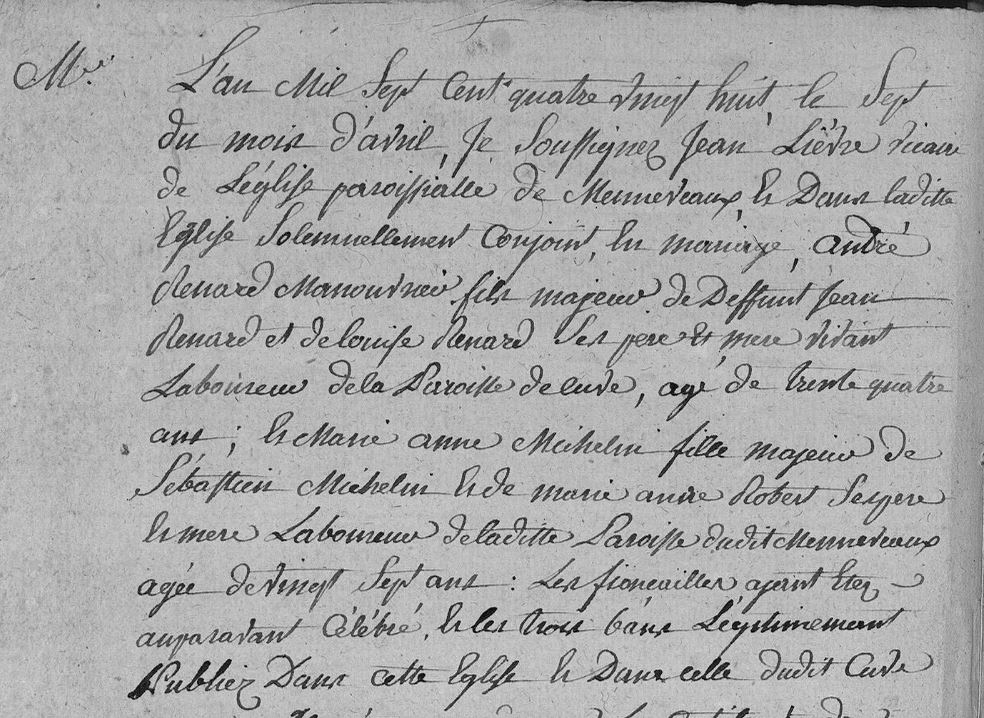 M.
L'an Mil Sept Cent quatre vingt huit, le Sept
du mois d'avril, Je Soussignez Jean Lièvre vicaire
de L'église paroissialle de Menneveaux, Et Dans laditte
Eglise Solemnellement Conjoint, En mariage, andré
Renard Manouvrier fils majeur de Deffunt Jean
Renard et de Louise Renard Ses pere Et mere vivant
Laboureur de la Paroisse de Cuve, agé de trente quatre
ans; Et Marie anne Michelin fille majeur de
Sébastien Michelin Et de marie anne Robert Ses pere
Et mere Laboureur de laditte Paroisse dudit Menneveaux
agée de vingt Sept ans : Les fiancailles ayant Etez
auparavant Célébré, Et les trois bans Légitimement
Publiez Dans cette Eglise Et Dans celle dudit Cuve